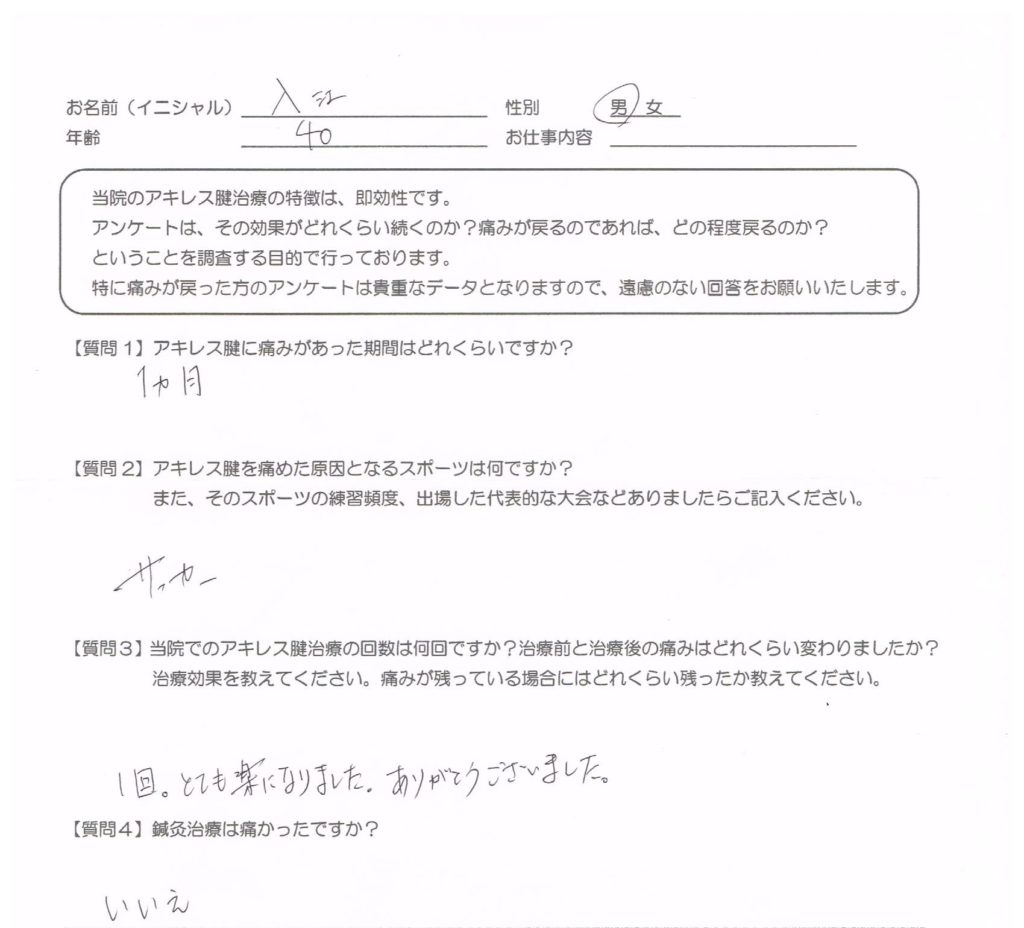 お名前（イニシャル） 入江 性別 男 女
年齢 40 お仕事内容
当院のアキレス腱治療の特徴は、即効性です。
アンケートは、その効果がどれくらい続くのか？痛みが戻るのであれば、どの程度戻るのか？
ということを調査する目的で行っております。
特に痛みが戻った方のアンケートは貴重なデータとなりますので、遠慮のない回答をお願いいたします。
【質問１】アキレス腱に痛みがあった期間はどれくらいですか？
1ヵ月
【質問２】アキレス腱を痛めた原因となるスポーツは何ですか？
また、そのスポーツの練習頻度、出場した代表的な大会などありましたらご記入ください。
サッカー
【質問３】当院でのアキレス腱治療の回数は何回ですか？治療前と治療後の痛みはどれくらい変わりましたか？
治療効果を教えてください。痛みが残っている場合にはどれくらい残ったか教えてください。
1回。とても楽になりました。ありがとうございました。
【質問４】鍼灸治療は痛かったですか？
いいえ